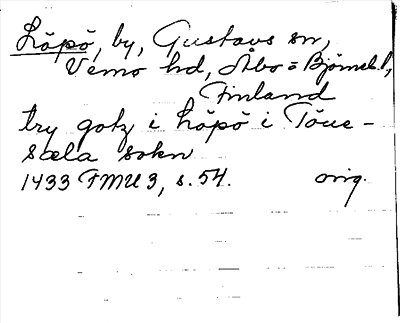 Löpö, by, Gustavs sn,
Vemo hd, Åbo = Björneb. l,
Finland
try gotz i Löpö i Töue-
sæla sokn
1433 FMU 3, s. 54. orig.